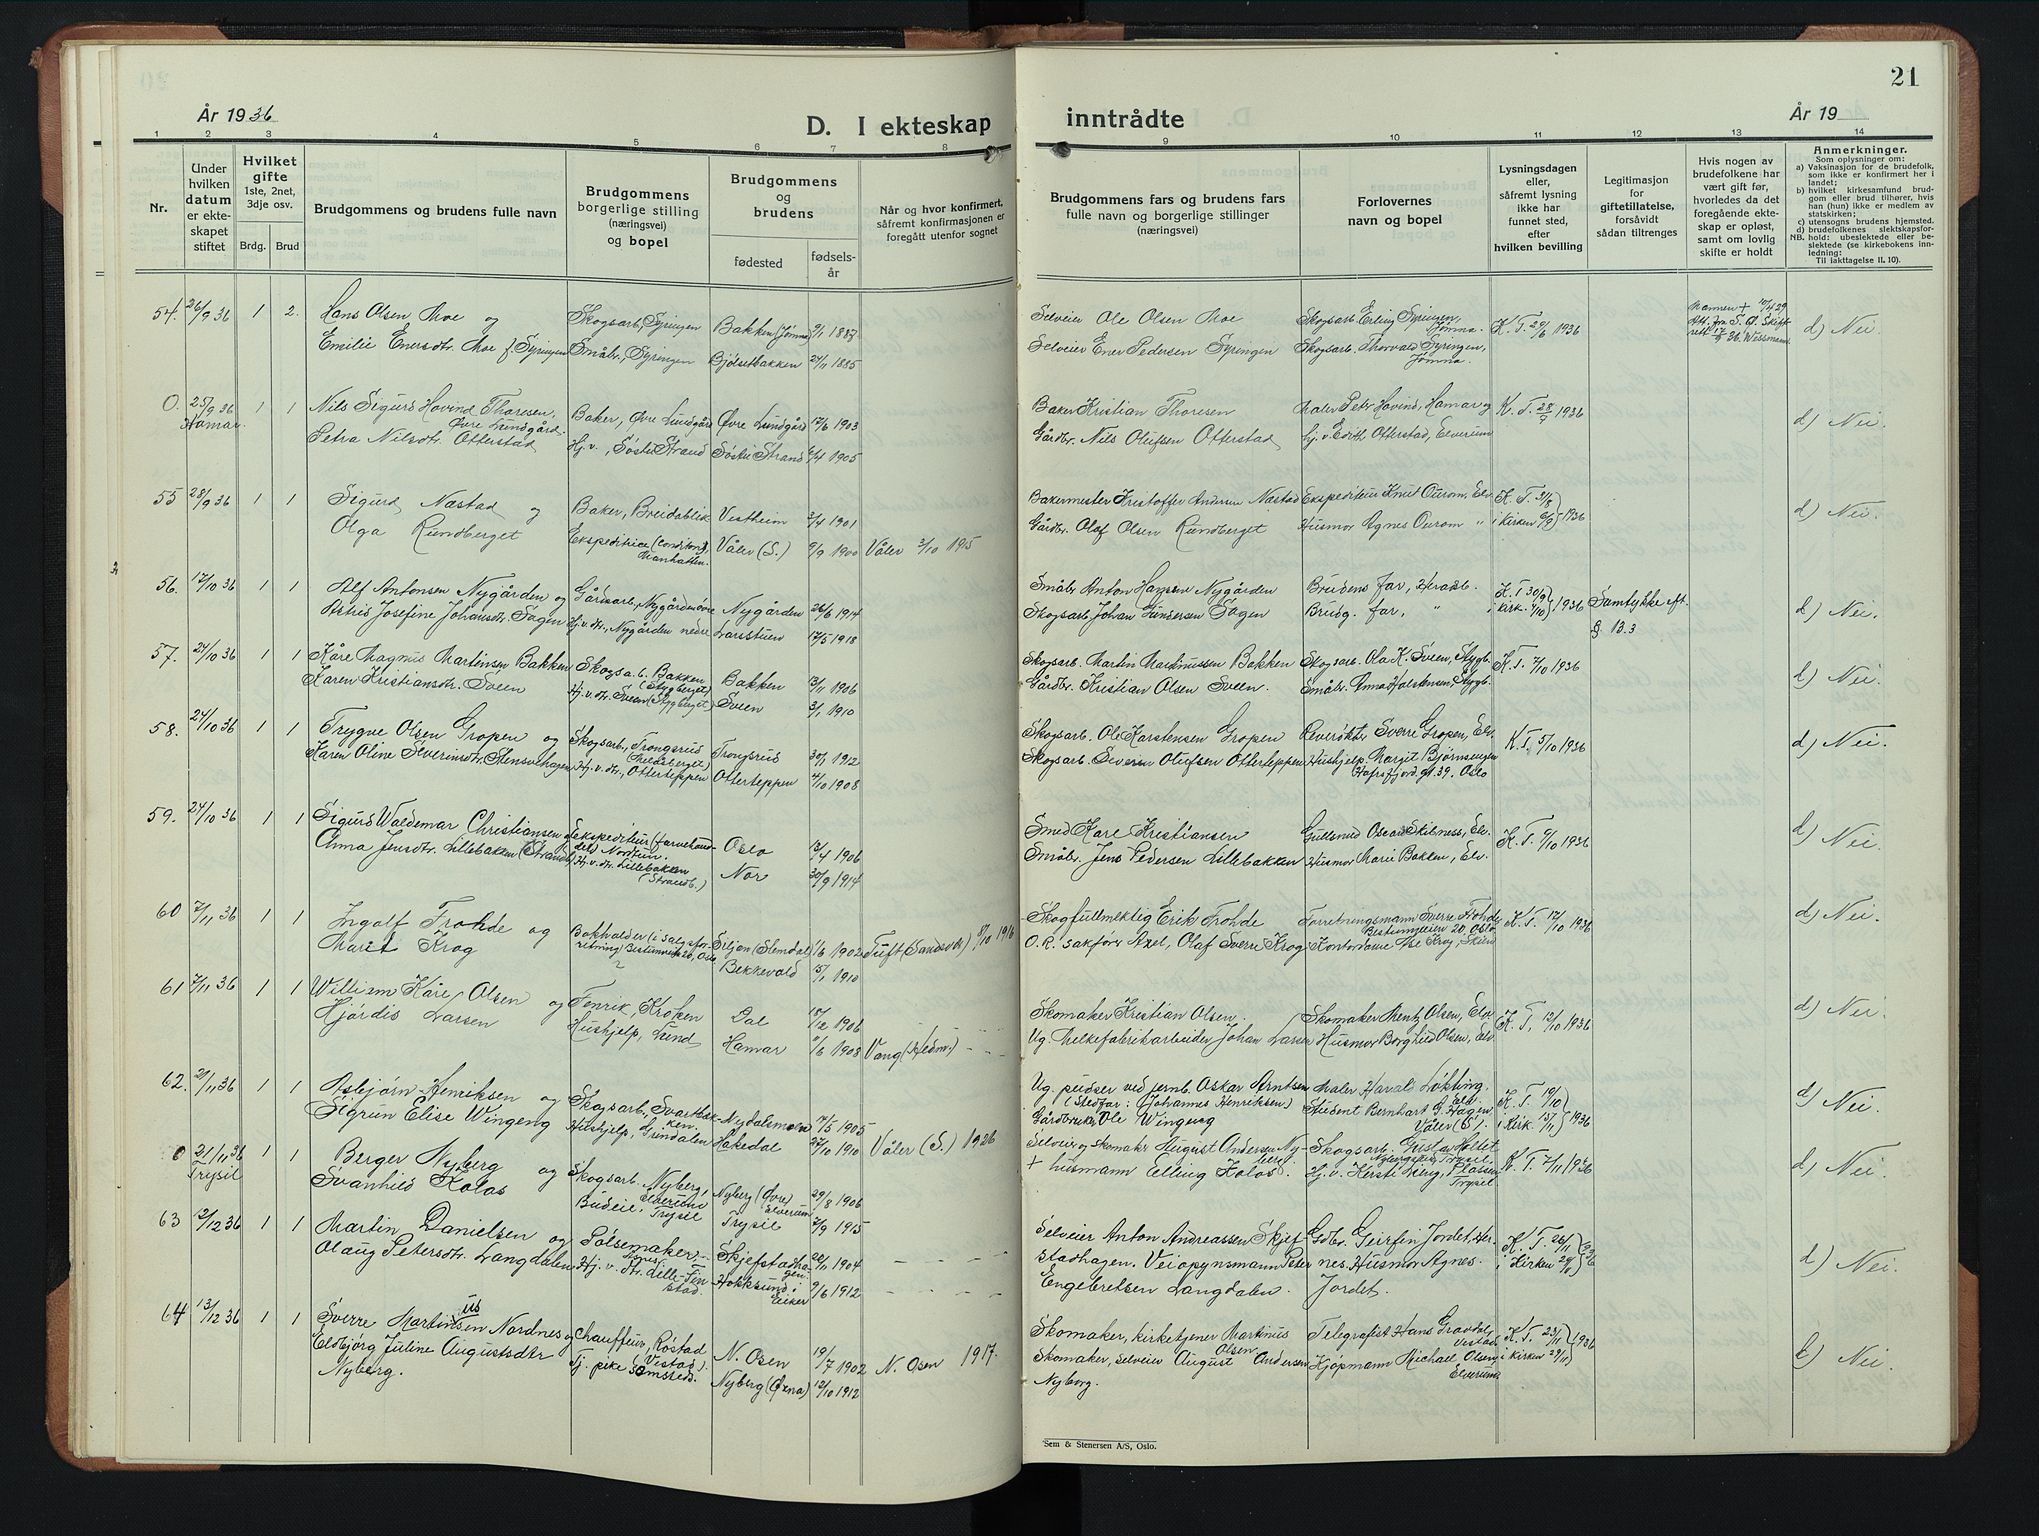 21
År 1936
D. I ekteskap
inntrådte
År 19
1 2 3 4 5 6 7 8
9 10 11 12 13 14
Nr.
Under
hvilken
datum
er ekte-
skapet
stiftet
Hvilket
gifte
1ste, 2net,
3dje osv.
Brdg. Brud
Brudgommens og brudens fulle navn
Brudgommens
borgerlige stilling
(næringsvei)
og bopel
Brudgommens
og
brudens
fødested
fødsels-
år
Når og hvor konfirmert,
såfremt konfirmasjonen er
foregått utenfor sognet
Brudgommens fars og brudens fars
fulle navn og borgerlige stillinger
(næringsvei)
Forlovernes
navn og bopel
Lysningsdagen
eller,
såfremt lysning
ikke har
funnet sted,
efter
hvilken bevilling
Legitimasjon
for
giftetillatelse,
forsåvidt
sådan tiltrenges
Hvis nogen av
brudefolkene har
vært gift før,
hvorledes da det
foregående ekte-
skap er opløst,
samt om lovlig
skifte er holdt
Anmerkninger.
Som oplysninger om:
a) Vaksinasjon for de brudefolk,
som ikke er konfirmert her i
landet;
b) hvilket kirkesamfund brud-
gom eller brud tilhører, hvis
han (hun) ikke er medlem av
statskirken;
c) utensogns brudens hjemsted.
d) brudefolkenes slektskapsfor-
NB. hold: ubeslektede eller be-
slektede (se kirkebokens inn-
ledning:
Til iakttagelse II. 10).
54. 26/9 36 1 2. Hans Olsen Moe og Skogsarb., Syringen Bakken (Jømna) 9/1 1887 Selveier Ole Olsen Moe Skogsarb. Erling Syringen, Jømna. K. T. 29/6 1936 d) Nei
Emilie Enersdtr. Moe f. Syringen Småbr., Syringen Bjølsetbakken 24/11 1885 Selveier Ener Pedersen Syringen Skogsarb. Thorvald Syringen, Jømna.
Mannen + 10/4 29
0. 25/9 36 Hamar. 1 1 Nils Sigurd Hovind Thoresen, Øvre Lundgård. Baker, Øvre Lundgård Øvre Lundgård 17/6 1903 Baker Kristian Thoresen Maler Peter Hovind, Hamar og K. T. 28/9 1936 d) Nei.
Petra Nilsdtr. Otterstad Hj. v., Søstu Strand Søstu Strand 4/4 1905 Gårdbr. Nils Olufsen Otterstad hj. v. Edith Otterstad, Elverum
55 28/9 36 1 1 Sigurd Næstad og Baker, Breidablik Vestheim 2/4 1901 Bakermester Kristoffer Andersen Næstad Ekspeditør Knut Ourom, Elv. K. T. 31/8 1936 d) Nei.
Olga Rundberget Ekspeditrice (Conditori), Manhatten. Våler (S.) 9/9 1900 Våler 3/10 1915 Gårdbr. Olaf Olsen Rundberget Husmor Agnes Ourom " i kirken 6/9
56. 17/10 36 1 1 Alf Antonsen Nygården og Gårdsarb., Nygården øvre Nygården 26/6 1914 Småbr. Anton Hansen Nygården Brudens far, Heradsb. K. T. 30/9 1936 Samtykke eft. d) Nei.
Astrid Josefine Johansdtr. Sagen Hj. v. dtr., Nygården nedre Larsstuen 17/5 1918 Skogsarb. Johan Gundersen Sagen Brudg. far, " i kirk. 4/10 §. 13.3
57. 24/10 36 1 1 Kåre Magnus Martinsen Bakken Skogsa. b. Bakken (Stygberget) Bakken 13/11 1906 Skogsarb. Martin Markmussen Bakken Skogsarb. Ola K. Sveen, Stygb. K. T. 7/10 1936 d) Nei.
Karen Kristiansdtr. Sveen Hj. v. dtr. Sveen (Stygberget) Sveen 3/1 1910 Gårdbr. Kristian Olsen Sveen. Småbr. Anna Halstensen, Stygb.
58. 24/10 36 1 1 Trygve Olsen Gropen og Skogsarb., Trongsrud Trongsrud 30/1 1912 Skogsarb. Ole Karstensen Gropen Sverre Gropen, Elv. K. T. 5/10 1936 d) Nei.
Karen Oline Severinsdtr. Stensvehagen Hj. v. dtr., Otterteppen Otterteppen 4/10 1908 Skogsarb. Severin Olufsen Otterteppen Hushjelp Margit Bjørnsengen Hafrsfjord. gt. 39. Oslo
59. 24/10 36 1 1 Sigurd Waldemar Christiansen og Ekspeditør (farvehandel) Nordtun. Oslo 12/4 1906 Smed Kare Kristiansen Gullsmed Oscar Skilness, Elv. K. T. 9/10 1936 d) Nei.
Anna Jensdtr. Lillebakken (Strandb.) Hj. v. dtr. Lillebakken (Strandb.) Nor 30/9 1914 Småbr. Jens Pedersen Lillebakken Husmor Marie Bakken, Elv.
60 7/11 36 1 1 Ingolf Frohde og Bokholder (i salgsforretning) Bestumveien 20, Oslo Siljan (Slemdal) 1/6 1902 Tuft (Sandsvær) 8/10 1916 Skogfullmektig Erik Frohde Forretningsmann Sverre Frohde Bestumveien 20, Oslo K. T. 17/10 1936 d) Nei.
Marit Krog ? Bekkevold 15/1 1910 O.R. sakfører Axel, Olaf Sverre Krog Kontordame Åse Krog, Skien
61 7/11 36 1 1 William Kåre Olsen og Fenrik, Kroken Dal 18/12 1906 Skomaker Kristian Olsen. Skomaker Mentz Olsen, Elv. K. T. 12/10 1936 d) Nei.
Hjørdis Larsen Hushjelp, Lund Hamar 9/6 1908 Vang (Hedm.) Ug. Melkefabrikarbeider Johan Larsen Husmor Borghild Olsen, Elv.
62. 21/11 36 1 1 Asbjørn Henriksen og Skogsarb., Svartbekken. Nydalsmoen 14/5 1905 Ug. pudser ved jernb. Oskar Arntsen (Stedfar: Johannes Henriksen) Maler Harald Løkting, Elv. K. T. 19/10 1936 d) Nei.
Sigrun Elise Wingeng Hushjelp, Grindalen Hakedal 27/10 1910 Våler (S.) 1926 Gårdbruker Ole Wingeng Student Bernhart G. Hagen, Våler (S). i kirk. 15/11
0 21/11 36 Trysil 1 1 Berger Nyberg og Skogsarb. Nyberg, Elverum Nyberg (Øvre) Elverum 29/8 1906 Selveier og skomaker August Andersen Nyberg Skogsarb. Gustav Holtet K. T. 7/11 1936 d) Nei.
Svanhild Kolos Budeie, Trysil Trysil 7/9 1915 + husmann Elling Kolos. Trysil
63 12/12 36 1 1 Martin Danielsen og Pølsemaker Skjefstadhagen. 20/11 1904 Selveier Anton Andreassen Skjef- Gdbr. Geirfin Jordet, Her- K. T. 26/11 d) Nei.
Olaug Petersdtr. Langdalen Hj. v. dtr. Lille-Finstad. Hokksund i Eiker 9/6 1912 stadhagen. Veiopsynsmann Peter nes. Husmor Agnes i kirken 29/11 1936
Engebretsen Langdalen. Jordet.
64 13/12 36 1 1 Sverre Martinius Nordnes og Chauffeur, Røstad (Vestad). N. Osen 19/7 1902 N. Osen 1917. Skomaker, kirketjener Martinus Olsen Telegrafist Hans Gravdal, Vestad K. T. 23/11 1936 d) Nei.
Eldbjørg Juline Augustsdtr Nyberg. Tj. pike Sømsteds. Nyberg (Øxna) 12/10 1912 Skomaker, selveier August Andersen Nyborg. Kjøpmann Michael Olsen, Elverum i kirken 29/11
Sem & Stenersen A/S, Oslo.